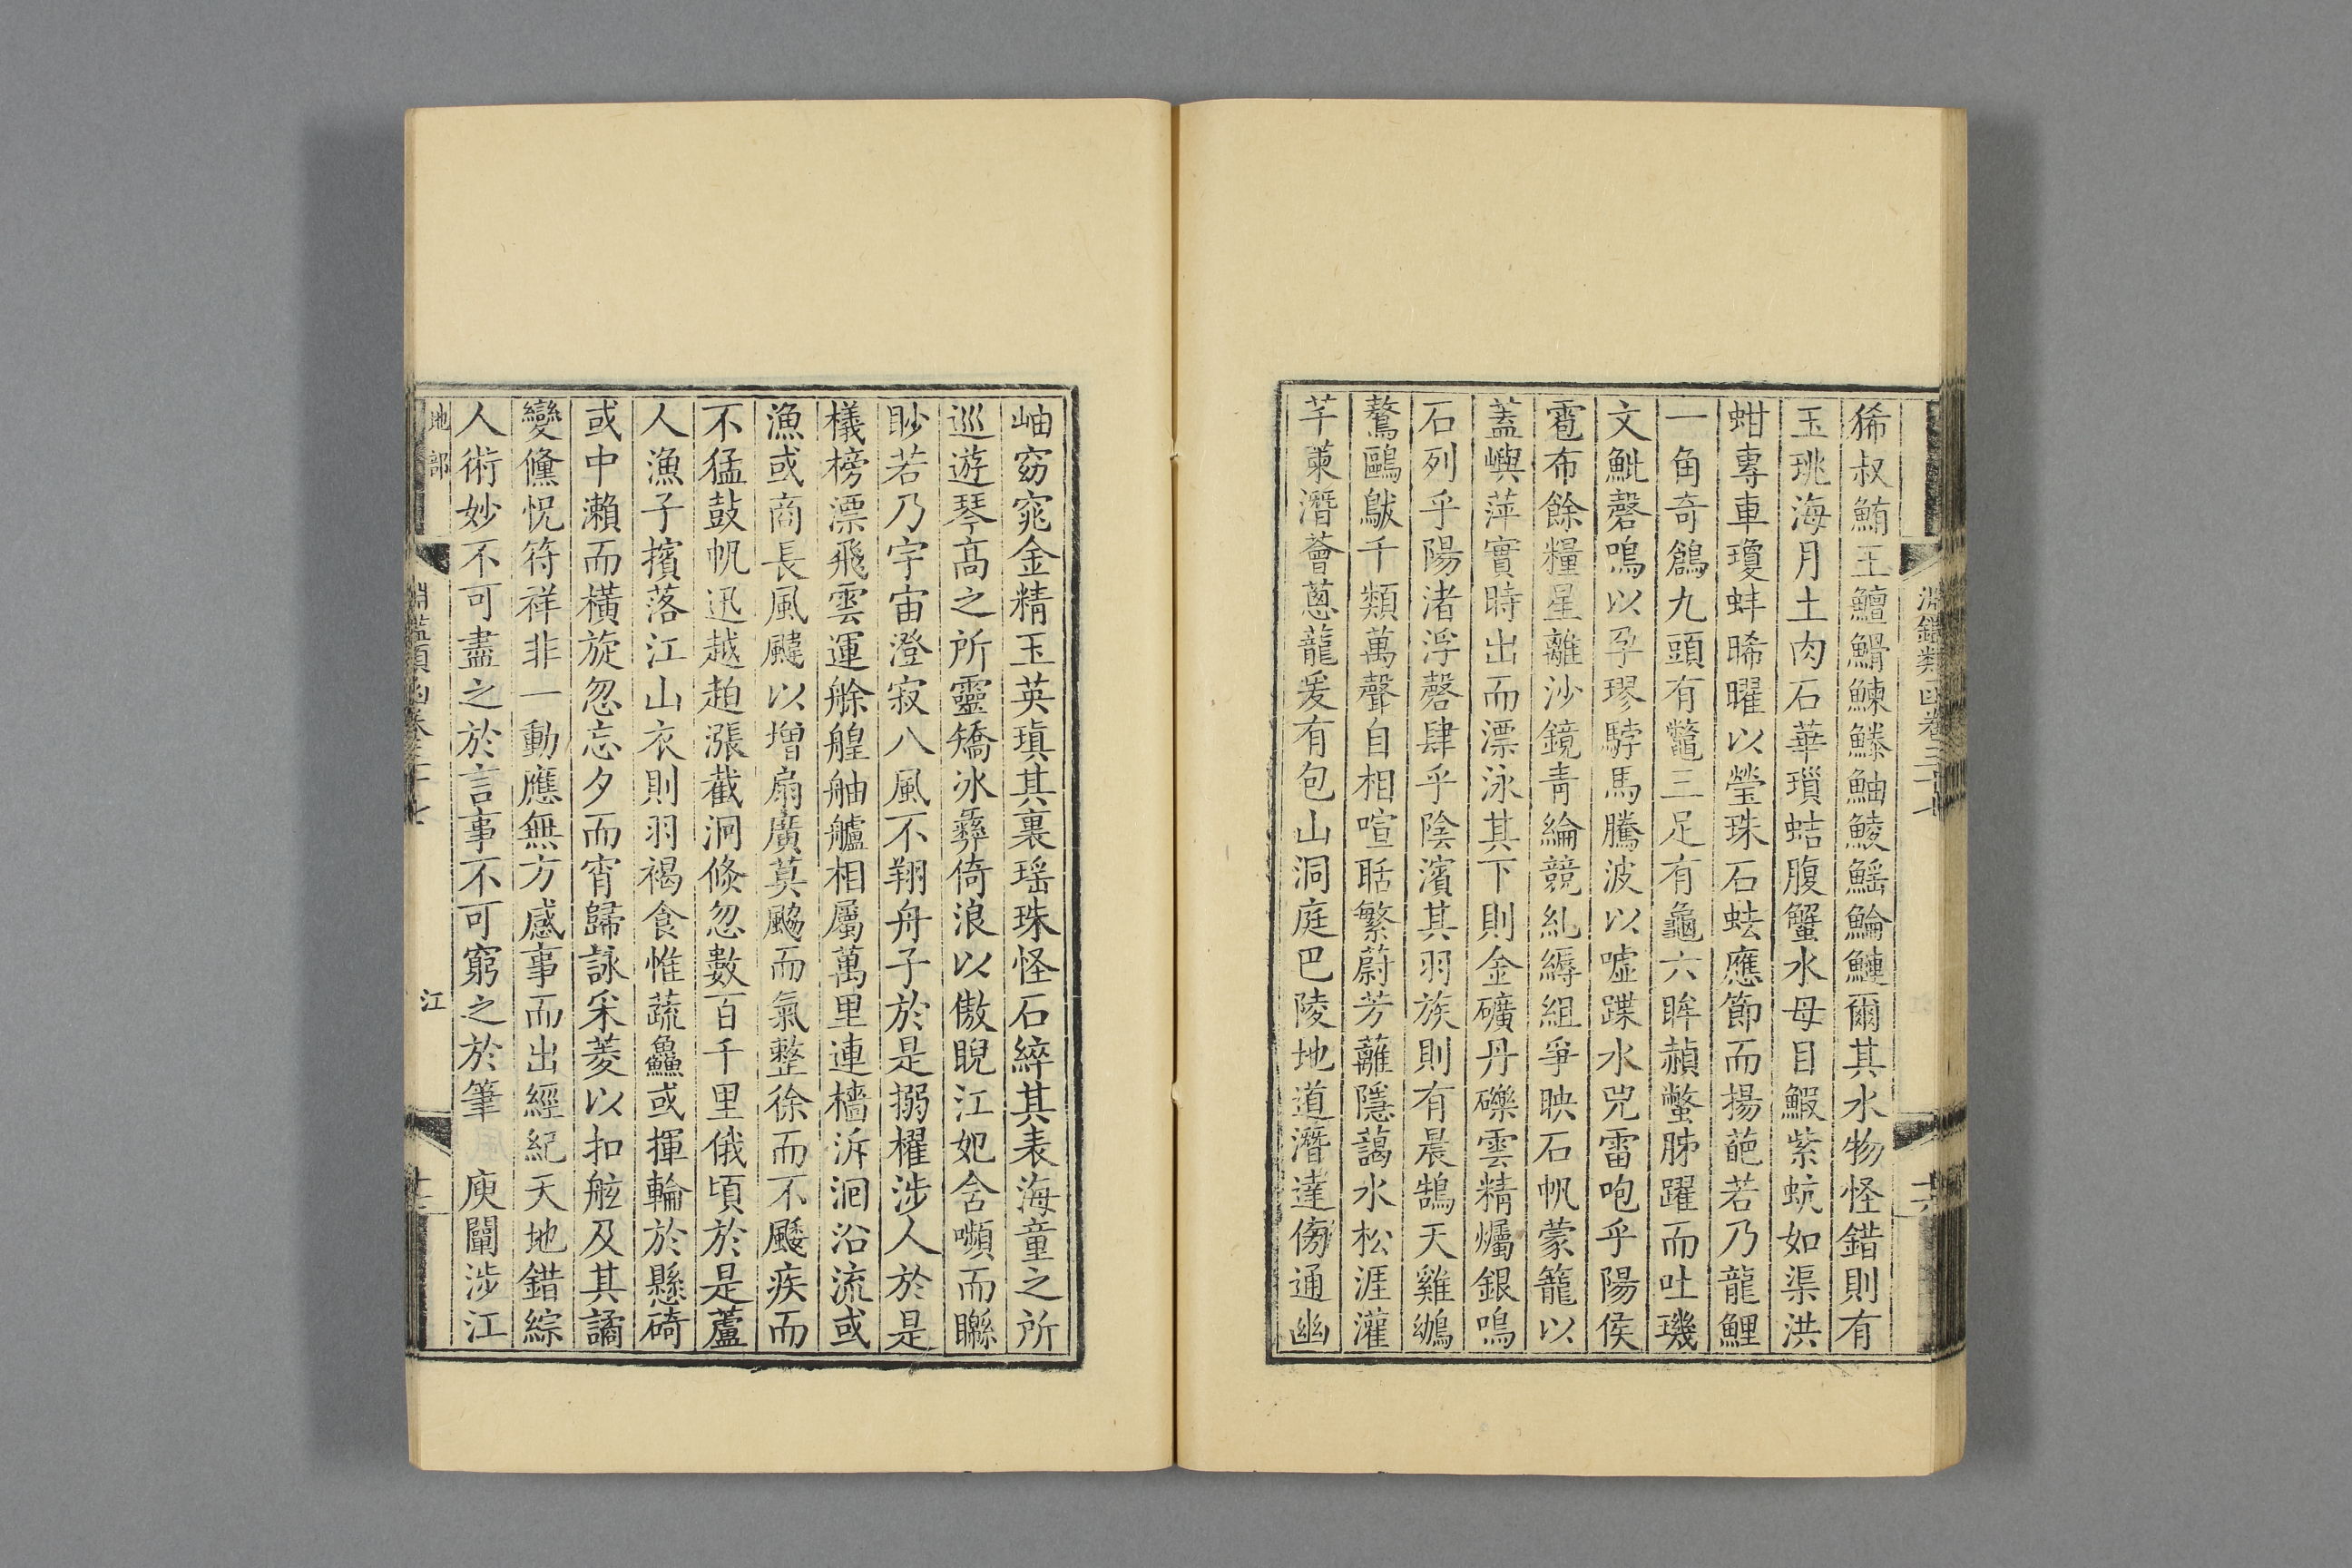 淵鑑類函卷三十七
豨叔鮪王鱣䱻鰊䲍鮋鯪鰩鯩鰱爾其水物怪錯則有
玉珧海月土肉石華瑣蛣腹蟹水母目鰕紫蚢如渠洪
蚶專車瓊蚌晞曜以瑩珠石蚨應節而揚葩若乃龍鯉
一角奇鶬九頭有鼈三足有龜六眸赬蟞胏躍而吐璣
文魮磬鳴以孕璆馬騰波以噓蹀水兕雷咆乎陽侯
雹布餘糧星離沙鏡青綸競糺縟組爭映石帆蒙籠以
蓋嶼萍實時出而漂泳其下則金礦丹礫雲精爥銀鳴
石列乎陽渚浮磬肆乎陰濱其羽族則有晨鵠天雞鴢
鶩鷗䲦千類萬聲自相喧聒繁蔚芳蘺隱藹水松涯灌
芊䔩潛薈蔥蘢爰有包山洞庭巴陵地道潛達傍通幽
岫窈窕金精玉英瑱其裏瑤珠怪石綷其表海童之所
巡遊琴高之所靈矯冰彝倚浪以傲睨江妃含嚬而矊
眇若乃宇宙澄寂八風不翔舟子於是搦櫂涉人於是
檥榜漂飛雲運艅艎舳艫相屬萬里連檣泝洄沿流或
漁或商長風颹以增扇廣莫䬅而氣整徐而不䬐疾而
不猛鼓帆迅越趠漲截泂倐忽數百千里俄頃於是蘆
人漁子擯落江山衣則羽褐食惟蔬鱻或揮輪於懸碕
或中瀨而橫旋忽忘夕而宵歸詠采菱以扣舷及其譎
變儵怳符祥非一動應無方感事而出經紀天地錯綜
人術妙不可盡之於言事不可窮之於筆 庾闡涉江
地部 淵鑑類函卷三十七 江